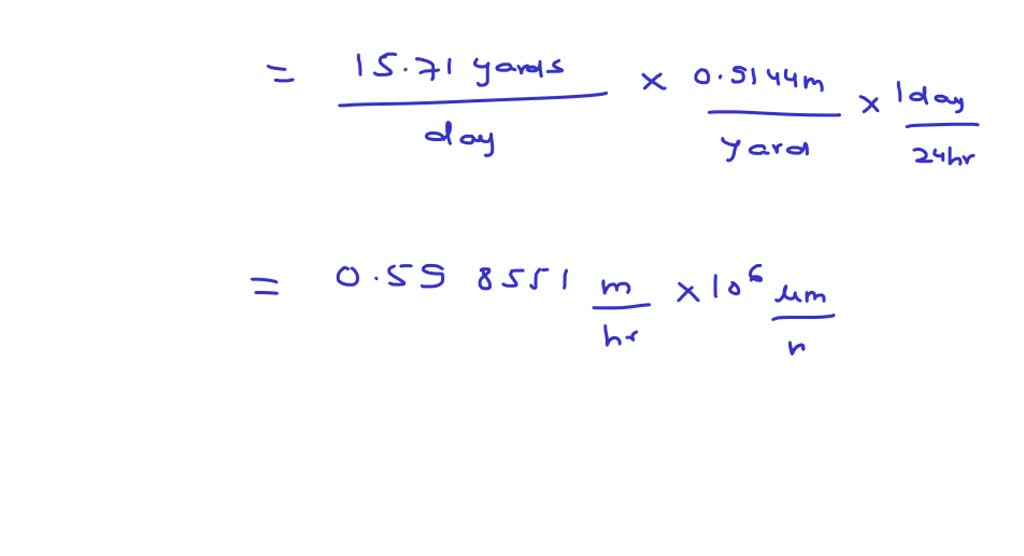 = 15.71 yards / day × 0.9144m / yard × 1day / 24hr
= 0.59 8551 m / hr × 10⁶ μm / n